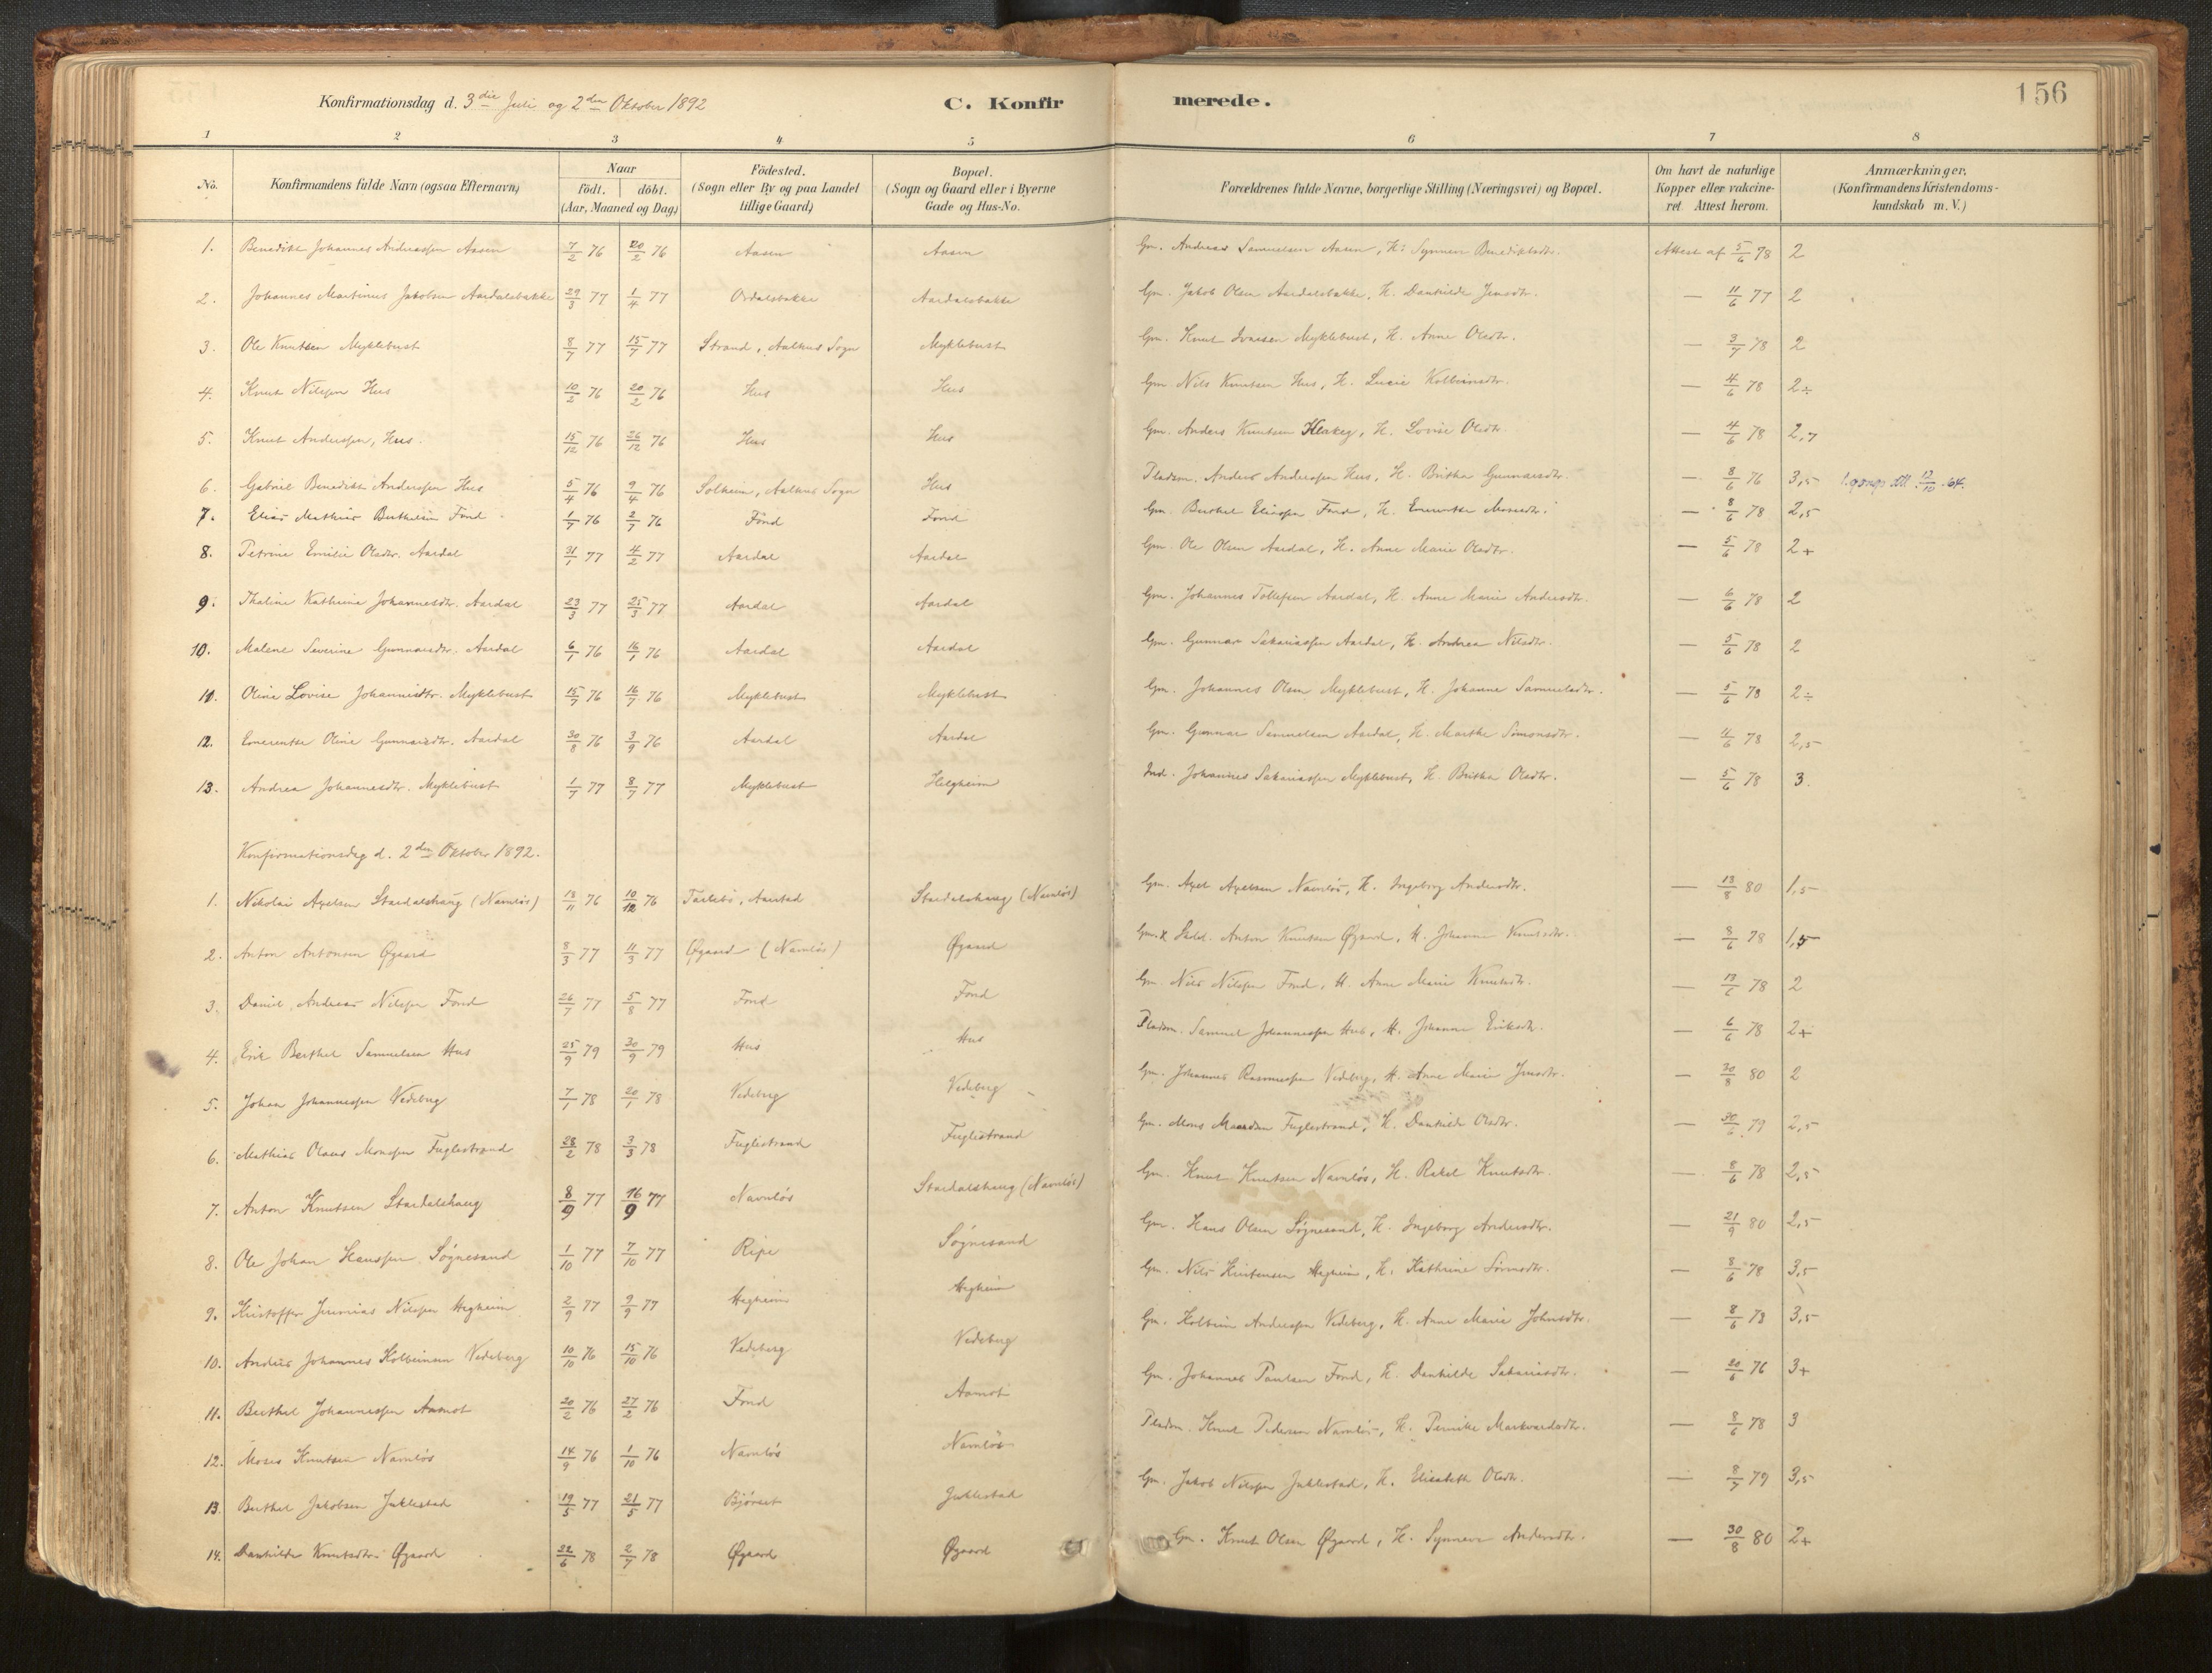 156
Konfirmationsdag d. 3die Juli og 2den Oktober 1892 C. Konfirmerede.
1 2 3 4 5 6 7 8
No. Konfirmandens fulde Navn (ogsaa Efternavn) Naar födt. döbt. (Aar, Maaned og Dag) Födested. (Sogn eller By og paa Landet tillige Gaard) Bopæl. (Sogn og Gaard eller i Byerne Gade og Hus-No. Forældrenes fulde Navne, borgerlige Stilling (Næringsvei) og Bopæl. Om havt de naturlige Kopper eller vakcineret. Attest herom. Anmærkninger. (Konfirmandens Kristendomskundskab m. V.)
1. Benedikt Johannes Andreassen Aasen 7/2 76 20/2 76 Aasen Aasen Gm. Andreas Samuelsen Aasen, H: Synneve Benediktsdtr. Attest af 5/6 78 2
2. Johannes Martinus Jakobsen Aardalsbakke 29/3 77 1/4 77 Ordalsbakke Aardalsbakke Gm. Jakob Olsen Aardalsbakke, H. Danhilde Jensdtr. — 11/6 77 2
3. Ole Knutsen Myklebust 8/7 77 15/7 77 Strand, Aalhus Sogn Myklebust Gm. Knut Ivarsen Myklebust, H. Anne Olsdtr. — 3/7 78 2
4. Knut Nilssen Hus 10/2 76 20/2 76 Hus Hus Gm Nils Knutsen Hus, H. Lucie Kolbeinsdtr. — 4/6 78 2÷
5. Knut Anderssen, Hus. 15/12 76 26/12 76 Hus Hus Gm. Anders Knutsen Klakeg, H. Lovise Olsdtr — 4/6 78 2,7
6. Gabriel Benedikt Anderssen Hus 5/4 76 9/4 76 Solheim, Aalhus Sogn Hus Pladsm. Anders Anderssen Hus, H. Britha Gunnarsdtr. — 8/6 76 3,5 1.gongs att. 12/10 - 64.
7. Elias Mathias Berthelsen Fond 1/7 76 2/7 76 Fond Fond Gm. Berthel Eliassen Fond, H. Emerentse Monsdtr. — 8/6 78 2,5
8. Petrine Emilie Olsdtr. Aardal 31/1 77 4/2 77 Aardal Aardal Gm. Ole Olsen Aardal, H. Anne Marie Olsdtr. — 5/6 78 2+
9. Thaline Kathrine Johannesdtr. Aardal 23/3 77 25/3 77 Aardal Aardal Gm. Johannes Tollefsen Aardal, H. Anne Marie Andersdtr. — 6/6 78 2
10. Malene Severine Gunnarsdtr. Aardal 6/1 76 16/1 76 Aardal Aardal Gm. Gunnar Sakariassen Aardal, H. Andrea Nilsdtr. — 5/6 78 2
11. Oline Lovise Johannesdtr. Myklebust 15/7 76 16/7 76 Myklebust Myklebust Gm. Johannes Olsen Myklebust, H. Johanne Samuelsdtr. — 5/6 78 2÷
12. Emerentse Oline Gunnarsdtr. Aardal 30/8 76 3/9 76 Aardal Aardal Gm. Gunnar Samuelsen Aardal, H. Marthe Simonsdtr. — 4/6 78 2,5
13. Andrea Johannesdtr. Myklebust 1/7 77 8/7 77 Myklebust Helgheim Ind. Johannes Sakariassen Myklebust, H. Britha Olsdtr. — 5/6 78 3.
Konfirmationsdag d. 2den Oktober 1892.
1. Nikolai Axelsen Stardalshaug (Navnløs) 13/11 76 10/12 76 Aarstad Stardalshaug (Navnløs) Gm. Axel Axelsen Navnløs, H. Ingeborg Andersdtr. — 13/8 80 1,5
2. Anton Antonsen Øgaard 8/3 77 11/3 77 Øgaard (Navnløs) Øgaard Anton Knutsen Øgaard, H. Johanne Knutsdtr. — 8/6 78 1,5
3. Daniel Andreas Nilssen Fond 26/7 77 5/8 77 Fond Fond Gm. Nils Nilssen Fond, H. Anne Marie Knutsdtr. — 13/6 78 2
4. Erik Berthel Samuelsen Hus 25/9 79 30/9 79 Hus Hus Pladsm. Samuel Johannessen Hus, H. Johanne Eriksdtr. — 6/6 78 2+
5. Johan Johannessen Vedeberg 7/1 78 20/1 78 Vedeberg Vedeberg Gm. Johannes Rasmussen Vedeberg, H. Anne Marie Jensdtr. — 30/8 80 2
6. Mathias Olaus Monssen Fuglestrand 28/2 78 3/3 78 Fuglestrand Fuglestrand Gm. Mons Fuglestrand, H. Danhilde Olsdtr. — 30/6 79 2,5
7. Anton Knutsen Stardalshaug 8/9 77 16/9 77 Navnløs Stardalshaug (Navnløs) Gm. Knut Knutsen Navnløs, H. Rakel Knutsdtr. — 8/6 78 2,5
8. Ole Johan Hanssen Søgnesand 1/10 77 7/10 77 Ripe Søgnesand Gm. Hans Olsen Søgnesand, H. Ingeborg Andersdtr. — 21/9 80 2,5
9. Kristoffer Jeremias Nilssen Hegheim 2/9 77 9/9 77 Hegheim Hegheim Gm. Nils Kristensen Hegheim, H. Kathrine Sørensdtr. — 8/6 78 3,5
10. Anders Johannes Kolbeinsen Vedeberg 10/10 76 15/10 76 Vedeberg Vedeberg Gm. Kolbein Anderssen Vedeberg, H. Anne Marie Johnsdtr. — 8/6 78 3,5
11. Berthel Johannessen Aamot 20/2 76 27/2 76 Fond Aamot Gm. Johannes Paulsen Fond, H. Danhilde Sakariasdtr. — 20/6 76 3+
12. Moses Knutsen Navnløs 14/9 76 1/10 76 Navnløs Navnløs Pladsm. Knut Pedersen Navnløs, H. Pernike Markvardsdtr. — 8/6 78 3
13. Berthel Jakobsen Juklestad 19/5 77 21/5 77 Bjørset Juklestad Gm. Jakob Nilssen Juklestad, H. Elisabeth Olsdtr. — 8/7 79 3,5
14. Danhilde Knutsdtr. Øgaard 22/6 78 2/7 78 Øgaard Øgaard Gm. Knut Olsen Øgaard, H. Synneve Andersdtr. — 30/8 80 2+